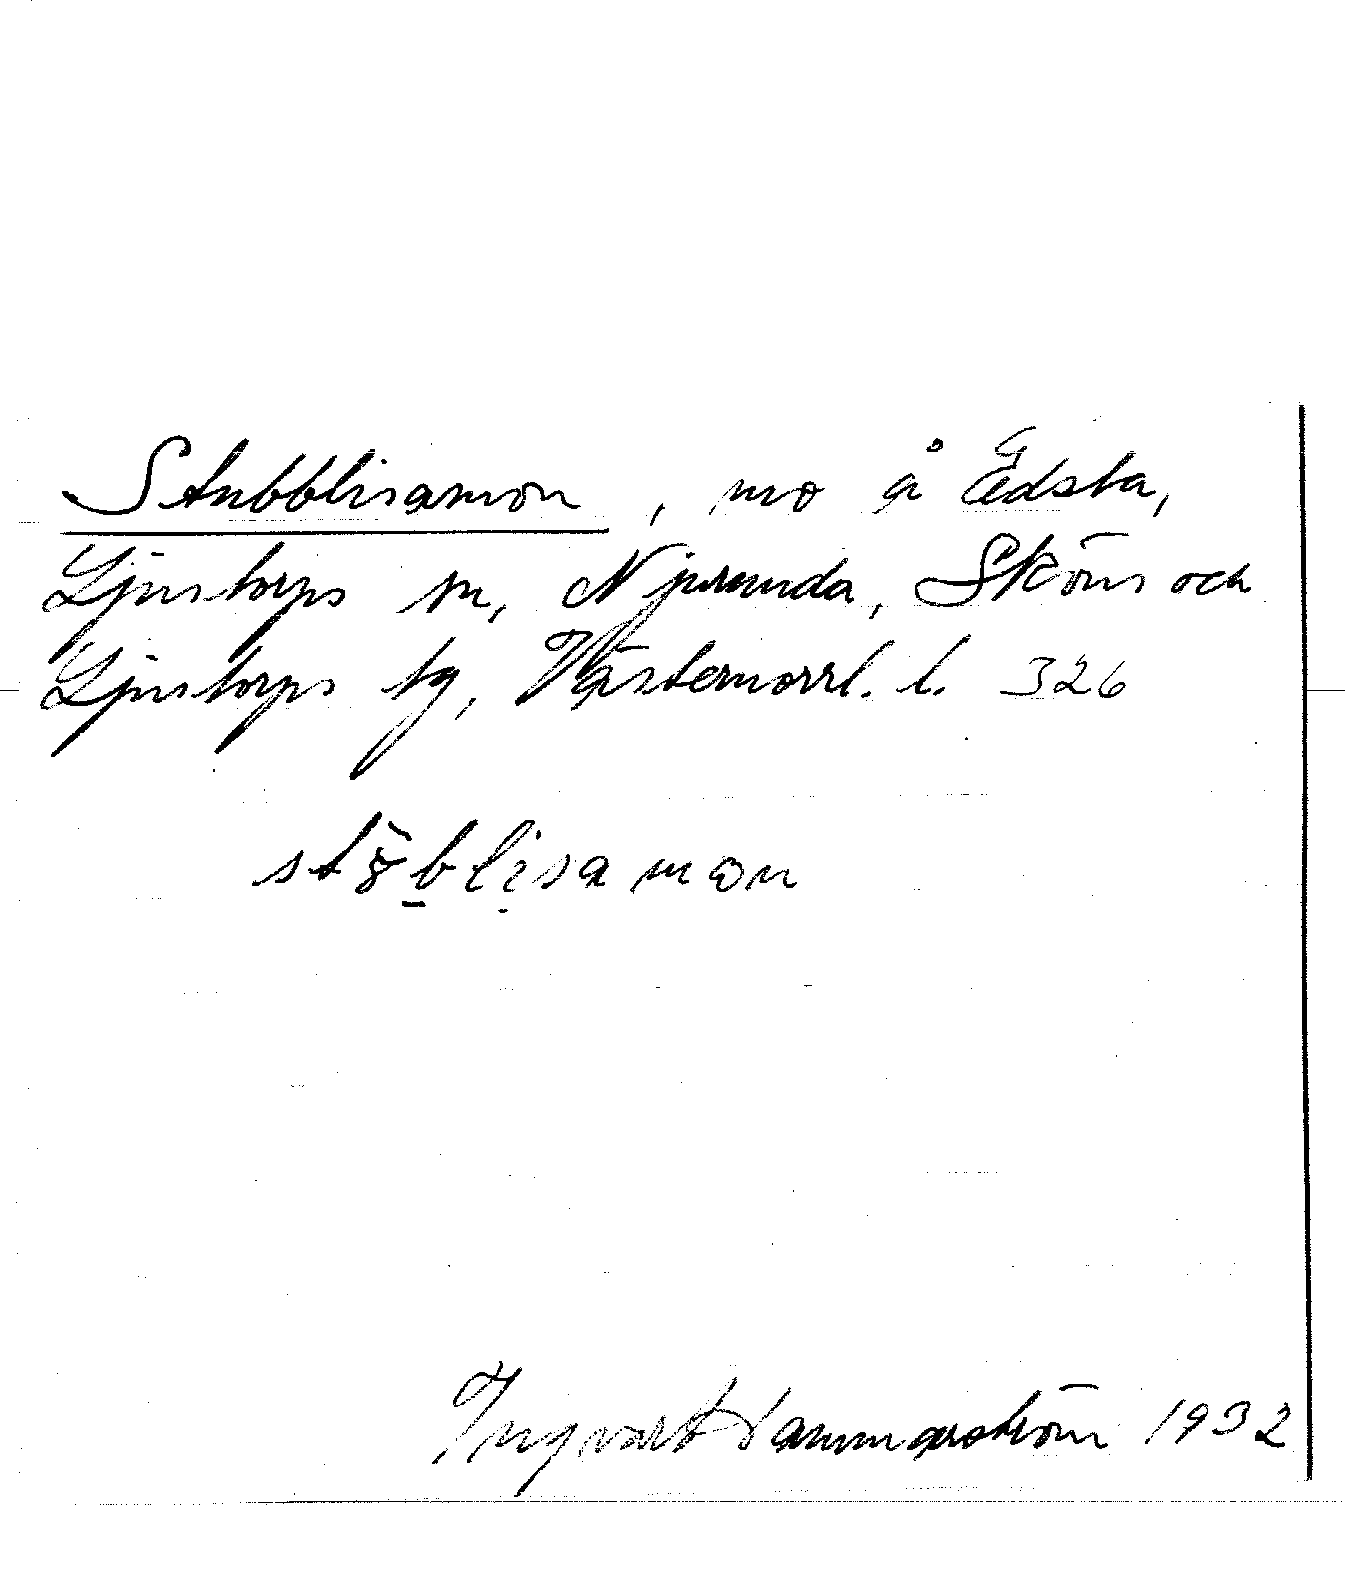 Stubblisamon, mo å Edsta,
Ljustorps sn, Njurunda, Sköns och
Ljustorps tg, Västernorrl. l. 326
Ingvart Hammarström 1932